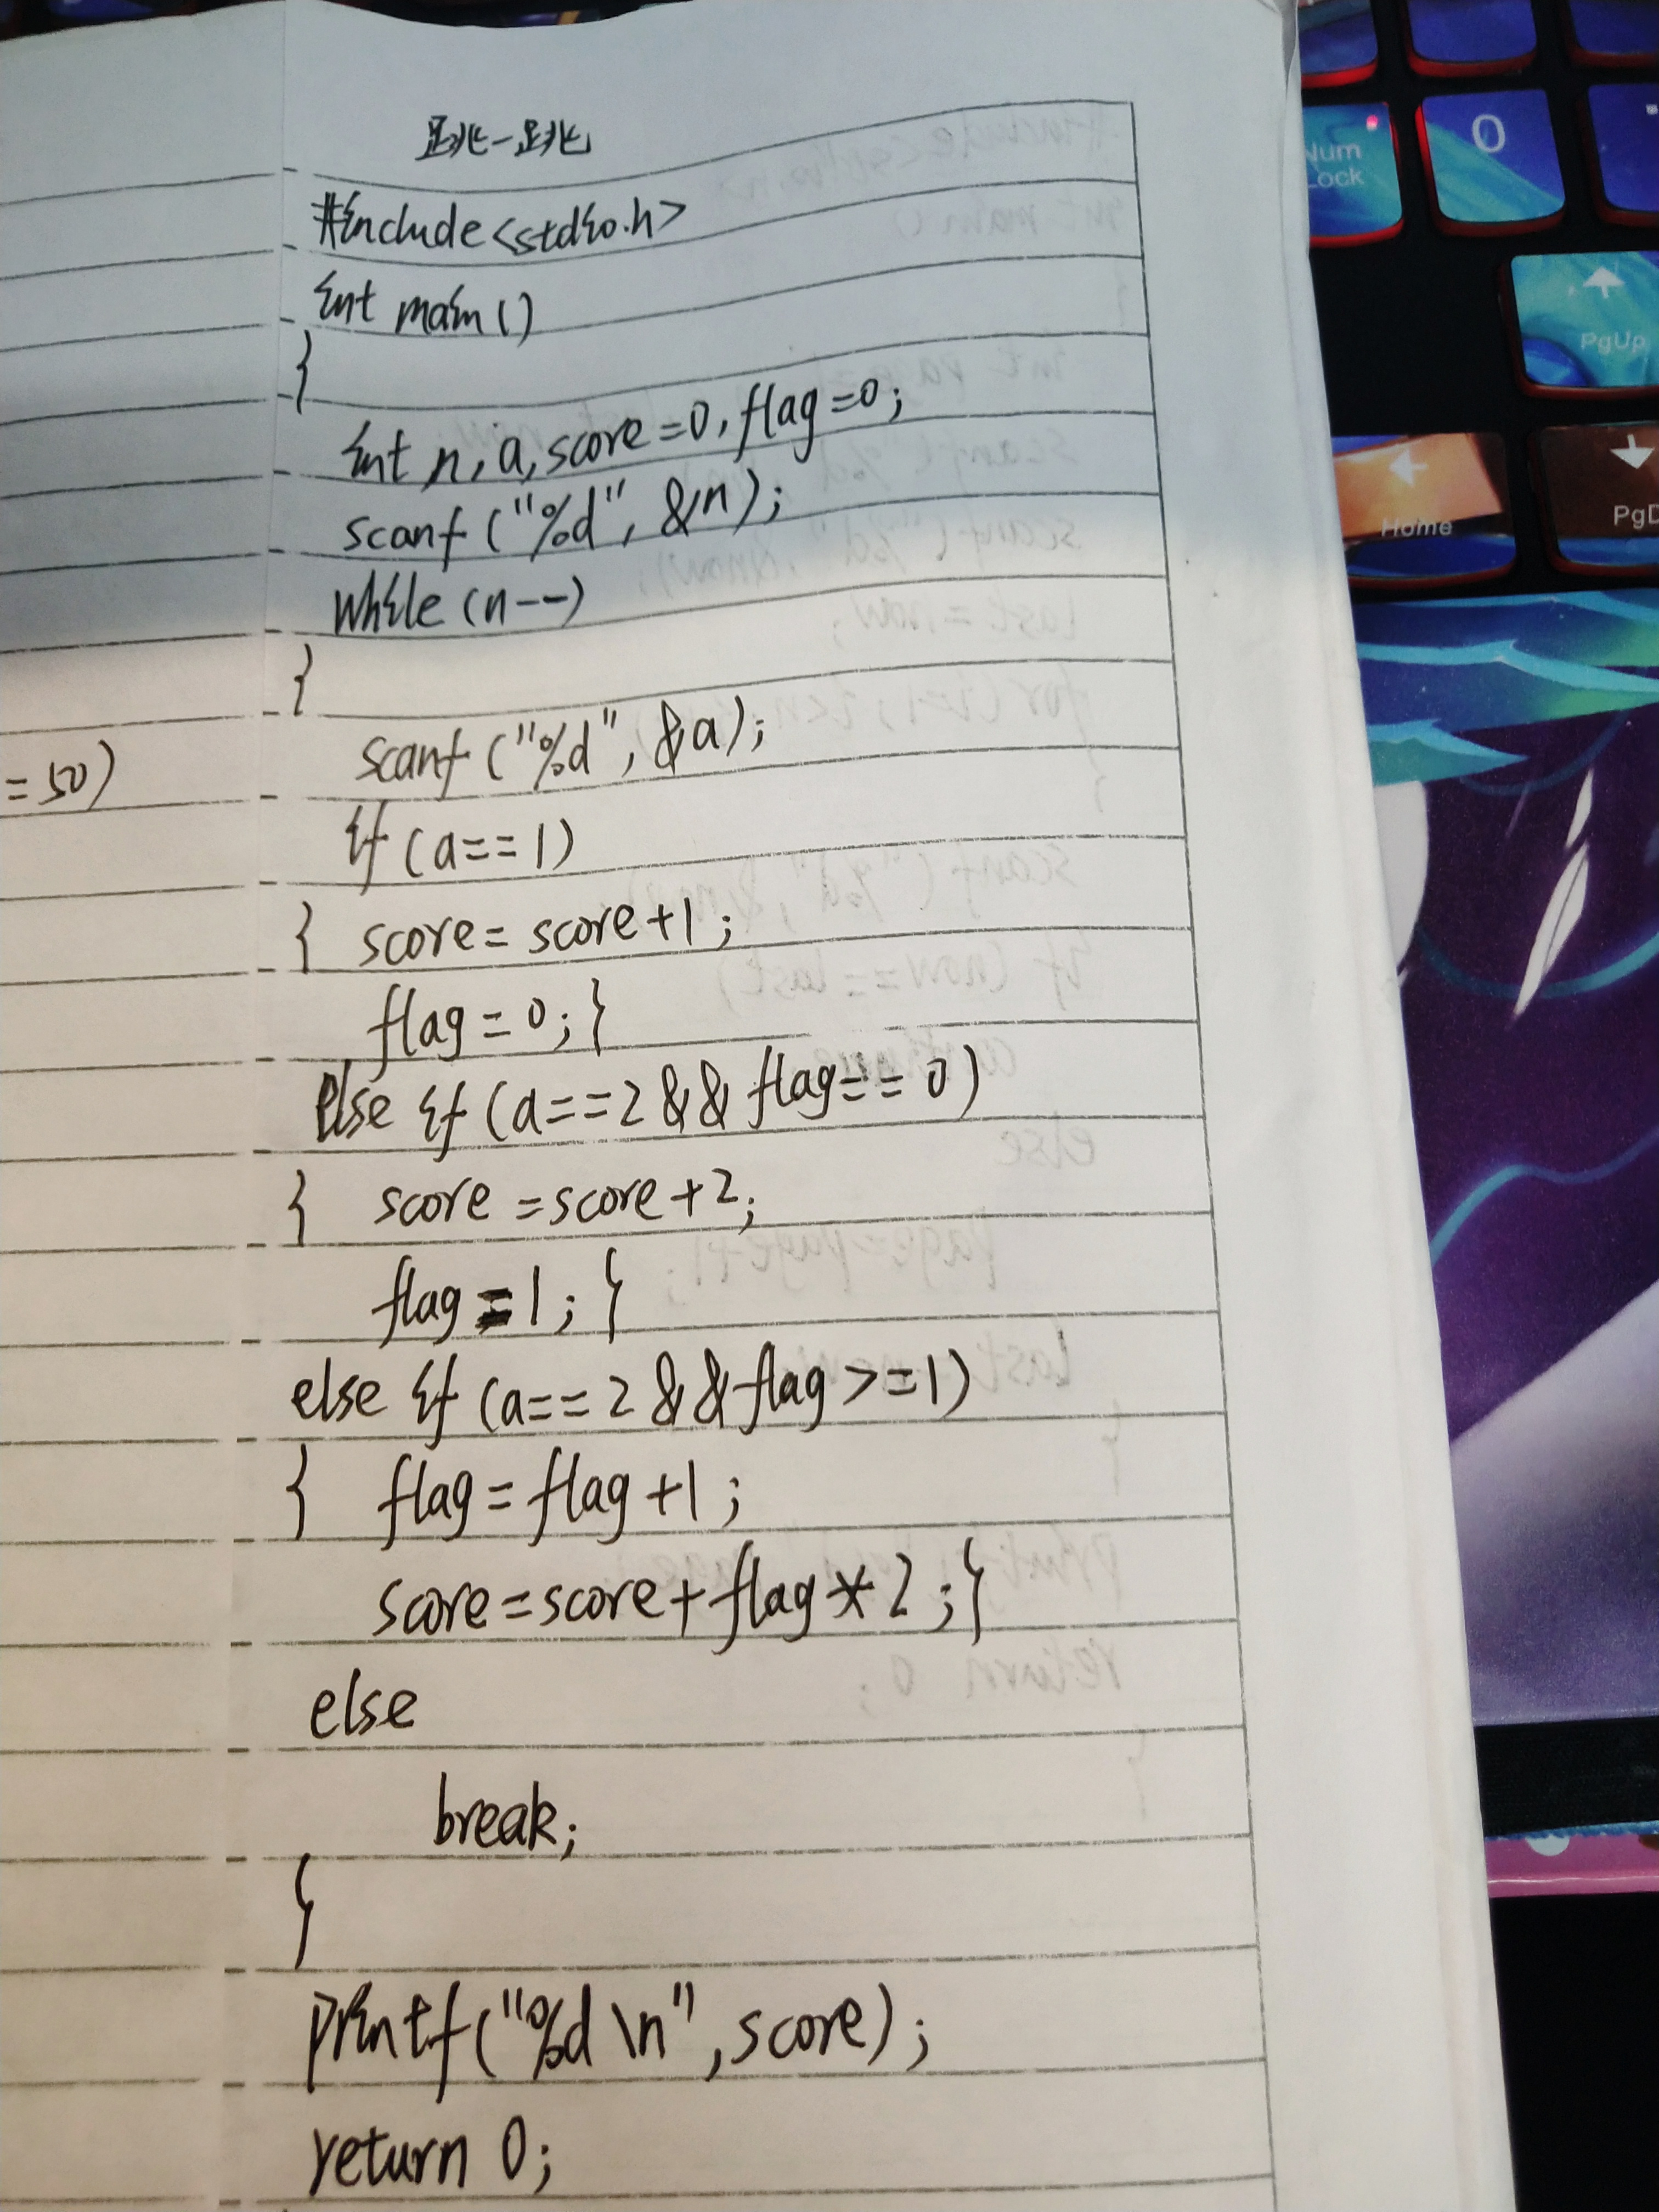 跳一跳
#include<stdio.h>
int main()
{
int n,a,score=0,flag=0;
scanf("%d",&n);
while(n--)
{
scanf("%d",&a);
=50)
if(a==1)
{ score=score+1;
flag=0;}
else if(a==2&&flag==0)
{ score=score+2;
flag=1;}
else if(a==2&&flag>=1)
{ flag=flag+1;
score=score+flag*2;}
else
break;
}
printf("%d\n",score);
return 0;
Num
Lock
0
PgUp
Home
PgD